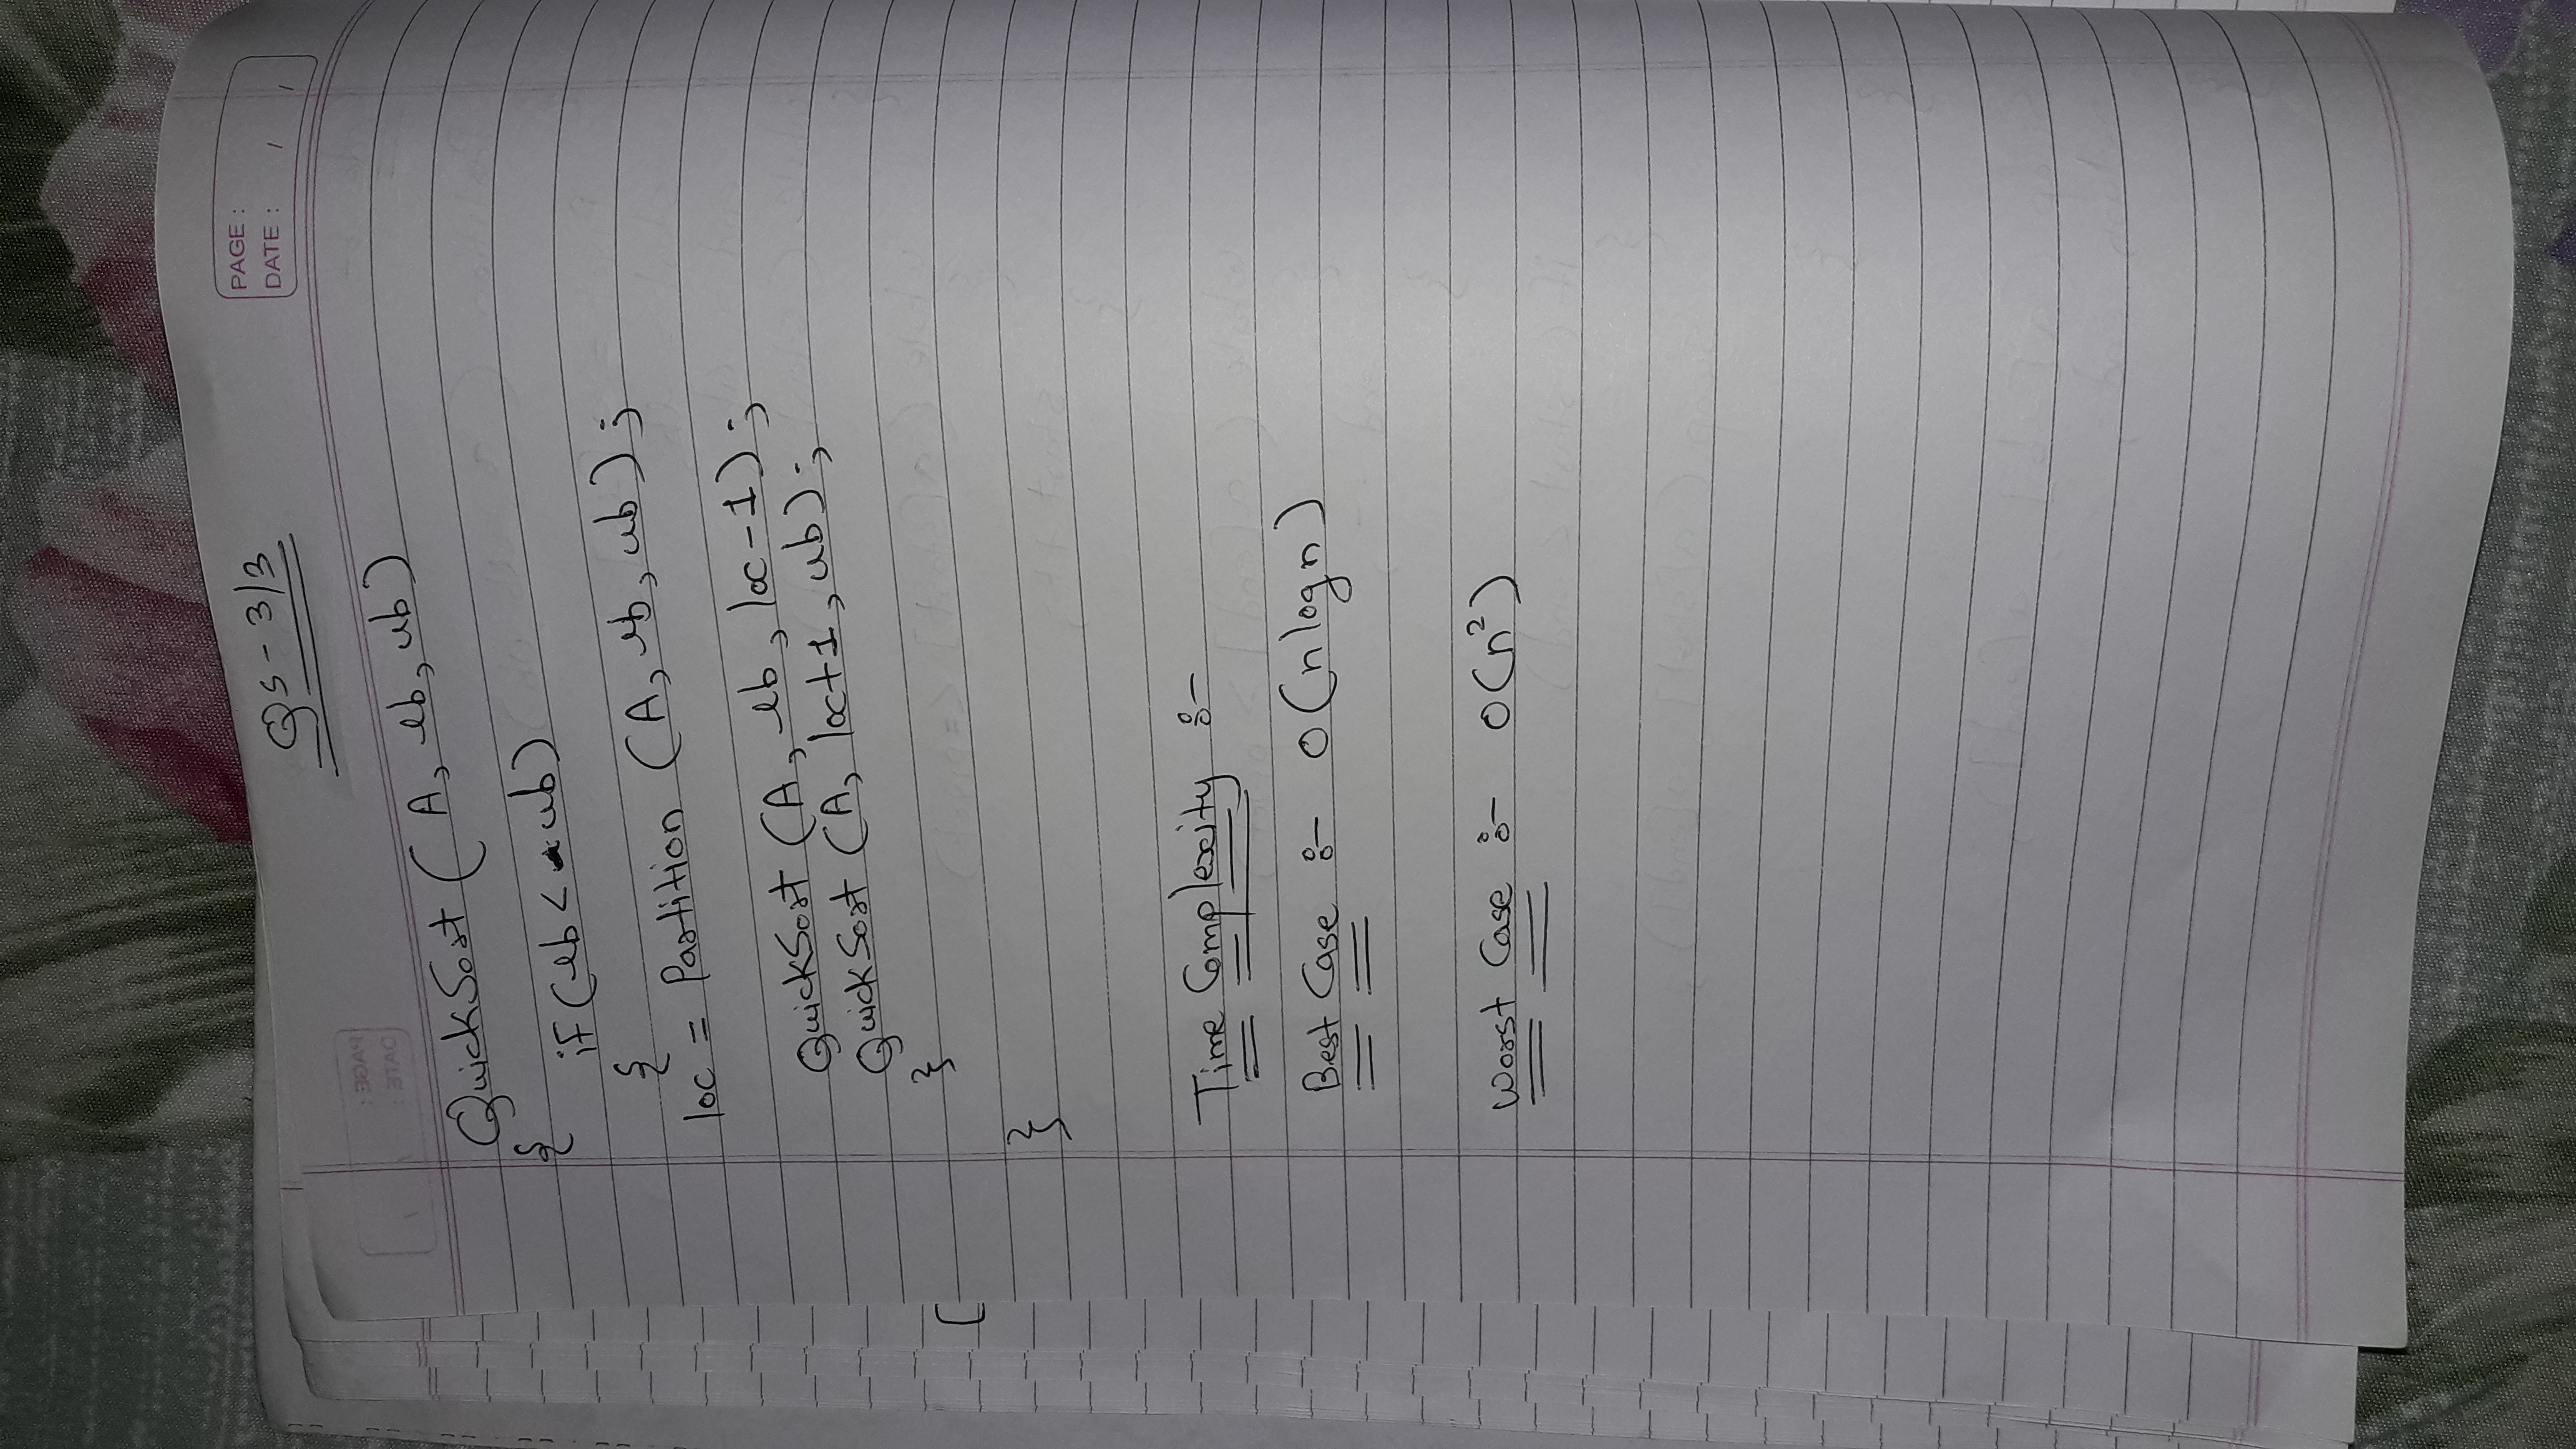 QS - 3/3
PAGE :
DATE : / /
QuickSort (A, lb, ub)
{
if (lb < ub)
{
loc = Partition (A, lb, ub);
QuickSort (A, lb, loc-1);
QuickSort (A, loc+1, ub);
}
}
Time Complexity :-
Best Case :- O(nlogn)
Worst Case :- O(n²)